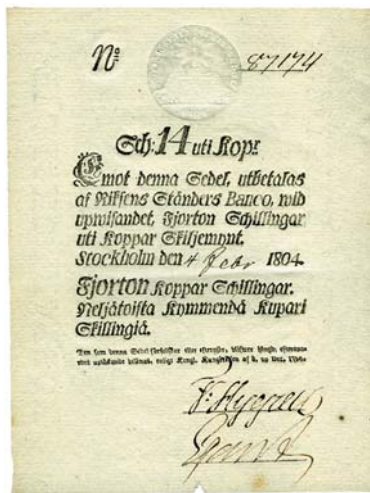 No 87174
Sch: 14 uti Kopr
Emot denna Sedel, utbetalas
af Riksens Ständers Banco, wid
upwisandet, Fjorton Schillingar
uti Koppar Skiljemynt.
Stockholm den 4 Febr 1804.
Fjorton Koppar Schillingar.
Neljätoista Kymmendä Kupari
Skillingiä.
Den som denna Sedel förfalskar eller eftergör,